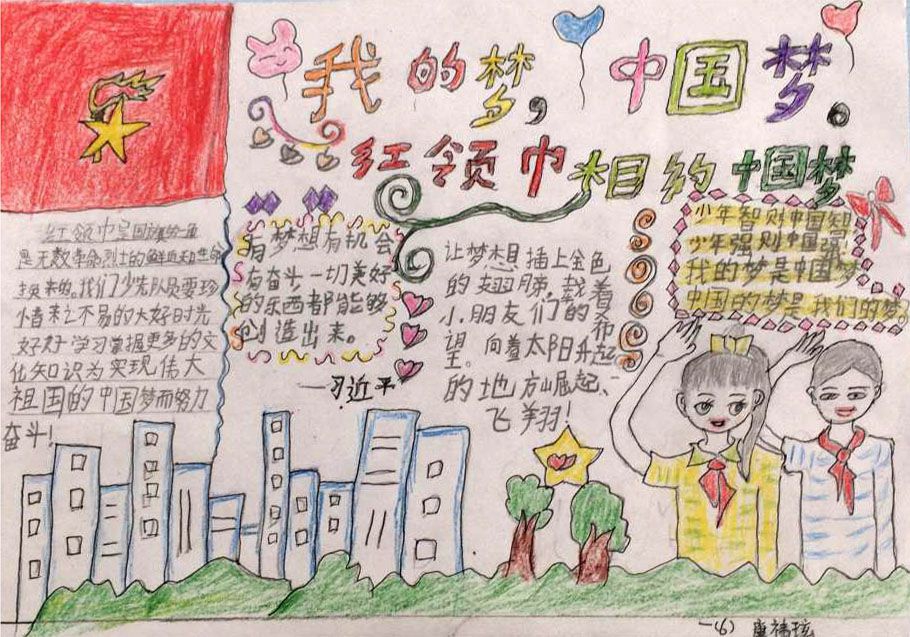 我的梦，中国梦。
红领巾相约中国梦
红领巾是国旗的一角
是无数革命烈士的鲜血和生命
换来的。我们少先队员要珍
惜来之不易的大好时光
好好学习掌握更多的文
化知识为实现伟大
祖国的中国梦而努力
奋斗！
有梦想有机会
有奋斗一切美好
的东西都能够
创造出来。
—习近平
让梦想插上金色
的翅膀，载着
小朋友们的希
望。向着太阳升起
的地方崛起、
飞翔！
少年智则中国智
少年强则中国强！
我的梦是中国梦
中国的梦是我们的梦。
一(6)